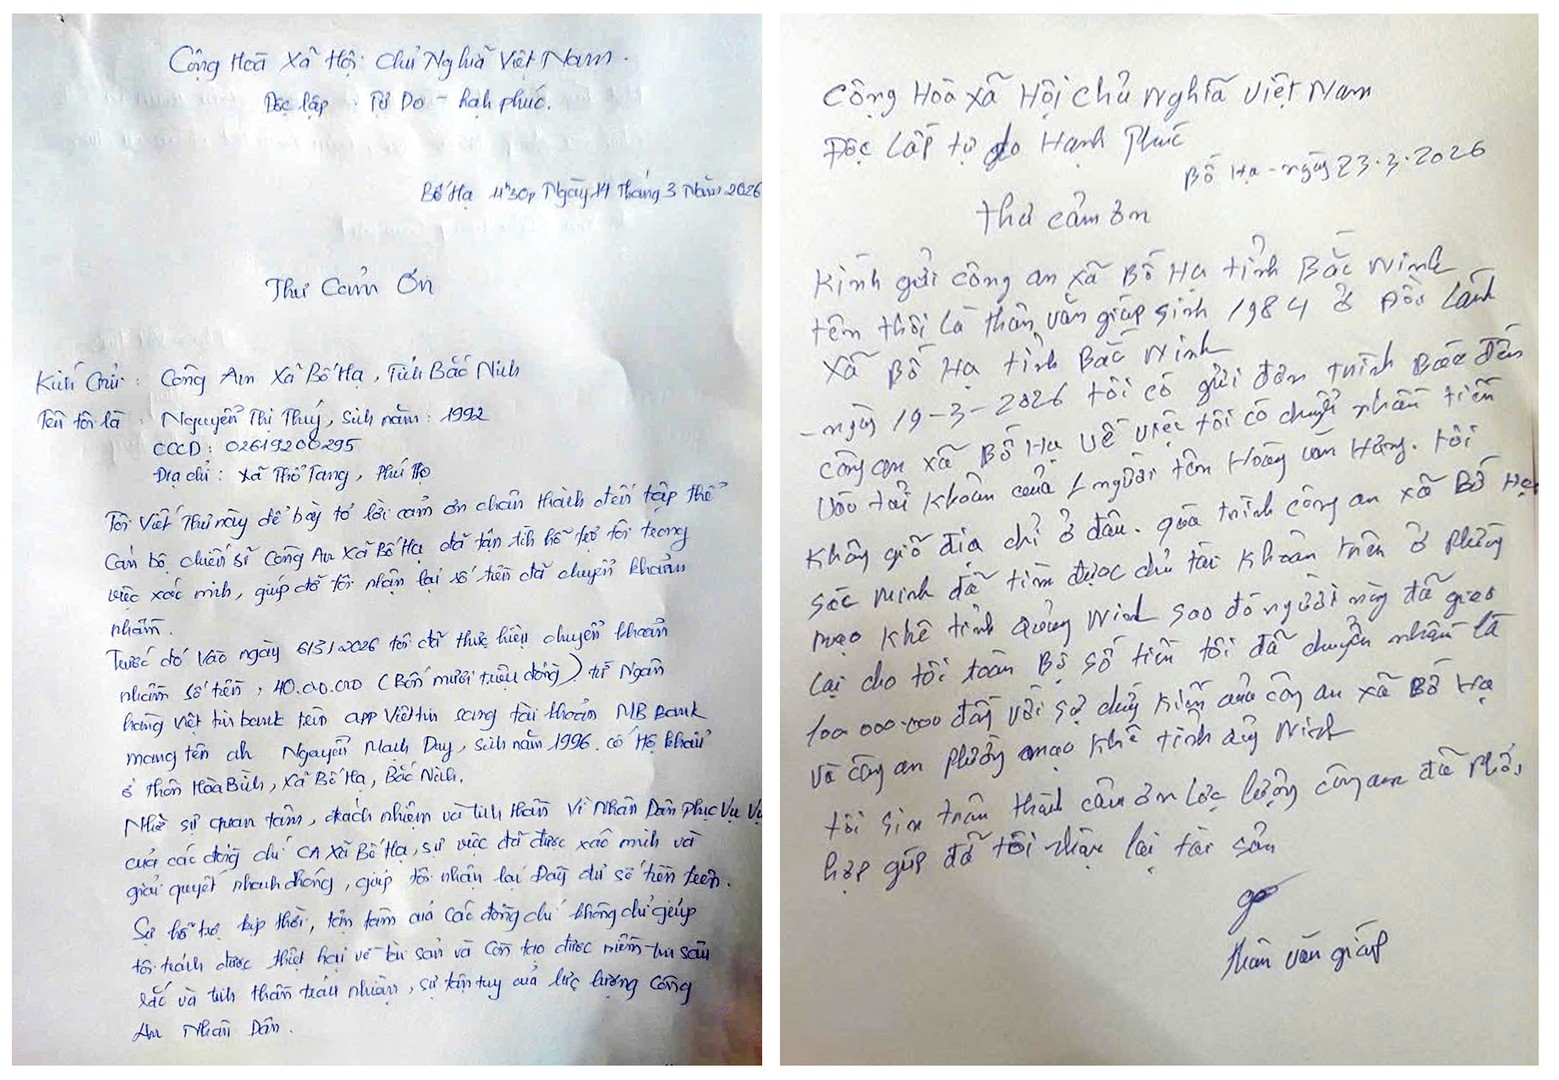 Cộng Hoà Xã Hội Chủ Nghĩa Việt Nam.
Độc lập - Tự Do - hạnh phúc.
Bố Hạ 11h30p Ngày 14 Tháng 3 Năm 2026
Thư Cảm Ơn
Kính Gửi : Công An Xã Bố Hạ, Tỉnh Bắc Ninh
Tên tôi là : Nguyễn Thị Thuý, Sinh năm : 1992
CCCD : 02619200295
Địa chỉ : Xã Thổ Tang, Phú Thọ
Tôi Viết Thư này để bày tỏ lời cảm ơn chân thành đến tập thể
Cán bộ, chiến sĩ Công An Xã Bố Hạ đã tận tình hỗ trợ tôi trong
việc xác minh, giúp đỡ tôi nhận lại số tiền đã chuyển khoản
nhầm.
Trước đó vào ngày 6/3/2026 tôi đã thực hiện chuyển khoản
nhầm số tiền : 40.000.000 (Bốn mươi triệu đồng) từ Ngân
hàng việt tin bank trên app Viettin sang tài khoản MB Bank
mang tên anh Nguyễn Mạnh Duy, sinh năm 1996. có Hộ khẩu
ở thôn Hoà Bình, Xã Bố Hạ, Bắc Ninh.
Nhờ sự quan tâm, trách nhiệm và tinh thần Vì Nhân Dân Phục Vụ
của các đồng chí CA Xã Bố Hạ, sự việc đã được xác minh và
giải quyết nhanh chóng, giúp tôi nhận lại Đầy đủ số tiền trên.
Sự hỗ trợ kịp thời, tận tâm của các đồng chí không chỉ giúp
tôi tránh được thiệt hại về tài sản và còn tạo được niềm tin sâu
sắc và tinh thần trách nhiệm, sự tận tuỵ của lực lượng Công
An Nhân Dân.
Cộng Hoà xã Hội chủ Nghĩa việt Nam
Độc Lấp tự do Hạnh Phúc
Bố Hạ - ngày 23.3.2026
thư cảm ơn
Kính gửi công an xã Bố Hạ tỉnh Bắc Ninh
tên thôi là thân văn giáp sinh 1984 ở Đồn Lánh
xã Bố Hạ tỉnh Bắc Ninh
- ngày 19-3-2026 tôi có gửi đơn trình Báo đến
công an xã Bố Hạ về việc tôi có chuyển nhầm tiền
vào tài khoản của 1 người tên Hoàng văn Hưng. tôi
không giõ địa chỉ ở đâu. qua trình công an xã Bố Hạ
sác minh đã tìm được chủ tài khoản trên ở phường
mạo khê tỉnh Quảng Ninh sao đó người này đã giao
lại cho tôi toàn Bộ số tiền tôi đã chuyển nhầm là
100.000.000 đồng với sự chứng kiến của công an xã Bố Hạ
và công an phường mạo khê tỉnh Ninh
tôi sin trân thành cảm ơn Lực lượng công an đã phối
hợp gúp đỡ tôi nhận lại tài sản
thân văn giáp